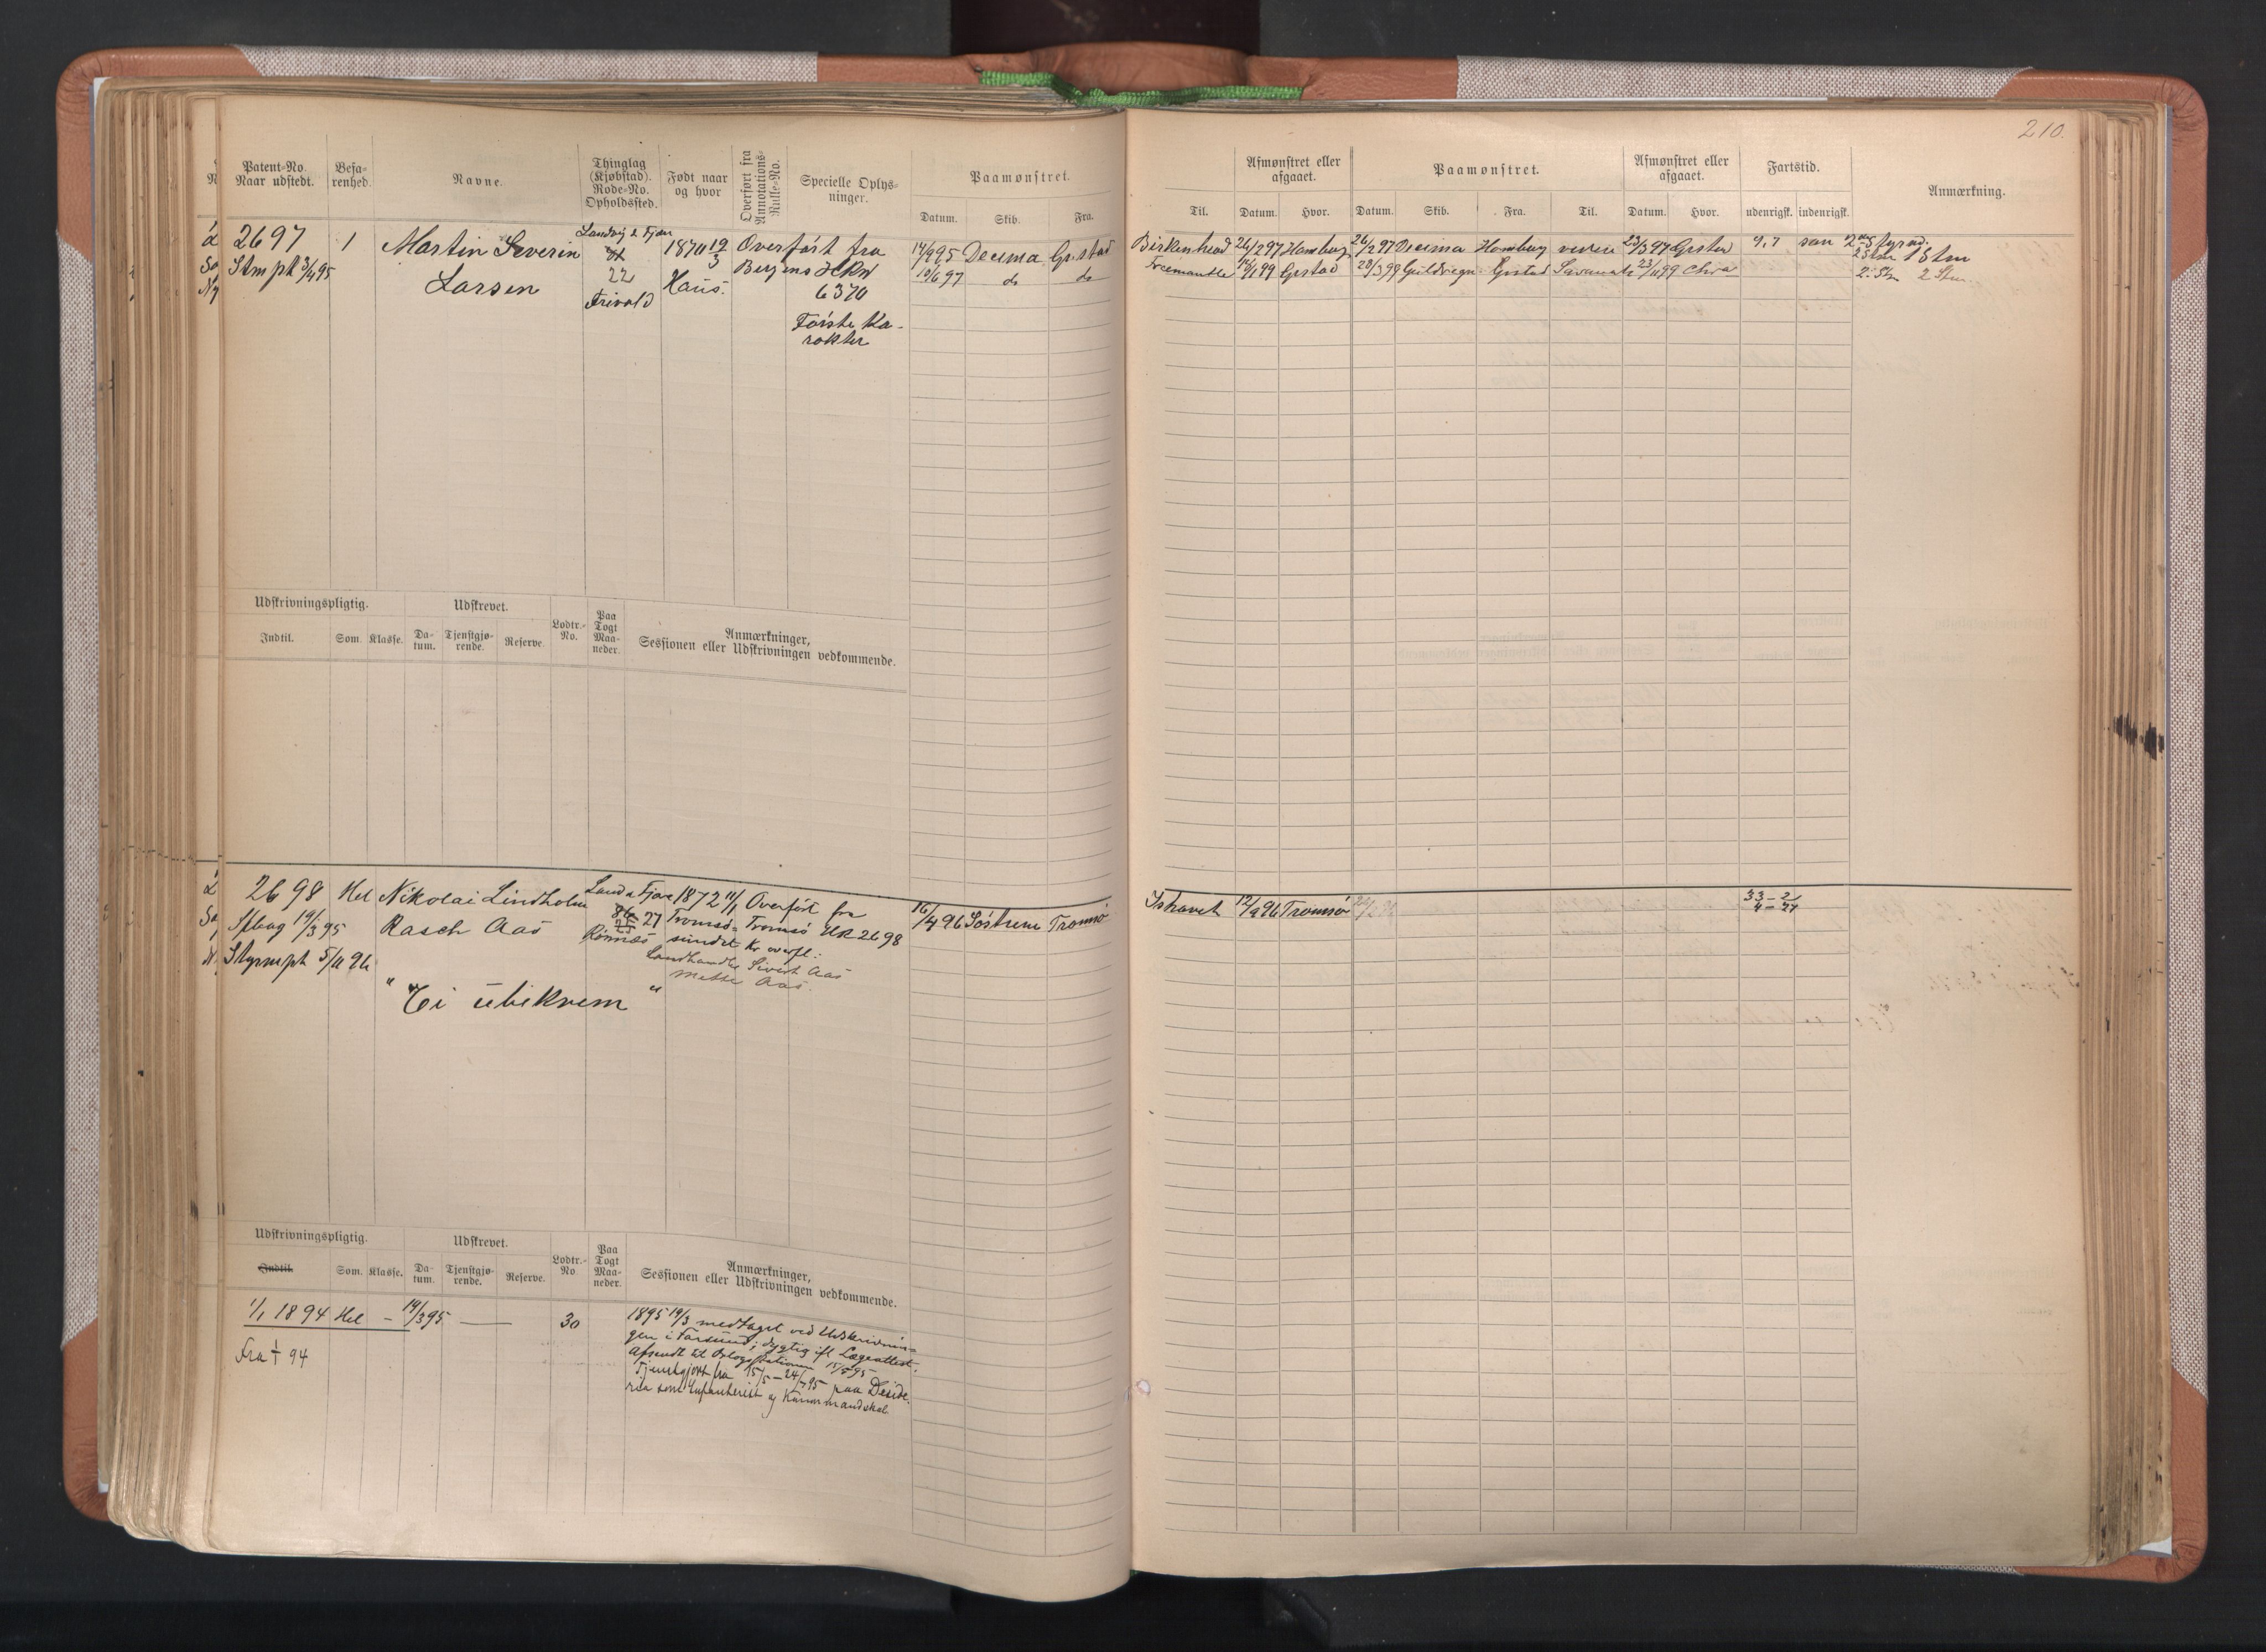 210.
Patent-No. Naar udstedt.
Befarenhed.
Navne.
Thinglag (Kjøbstad). Rode-No. Opholdssted.
Født naar og hvor
Overført fra Annotations-Rulle-No.
Specielle Oplysninger.
Paamønstret.
Datum. Skib. Fra.
Til.
Afmønstret eller afgaaet.
Datum. Hvor.
Paamønstret.
Datum. Skib. Fra. Til.
Afmønstret eller afgaaet.
Datum. Hvor.
Fartstid.
udenrigsk. indenrigsk.
Anmærkning.
2697 1 Martin Severin Larsen
Stmpt 3/4 95
22
1870 19/3 Haus.
Overført fra
Bergens HRN
6370
Første Ka-
rakter
17/9 95 Decima Grstad Birkenhead 26/2 97 Hamburg 26/2 97 Decima Hamburg 23/3 97 Grstad
10/6 97 do do Freemantle Grstad 28/3 99 Grstad 99 Chra
2 Stm 1 Stm
2 Stm 2 Stm
Udskrivningspligtig.
Indtil. Som. Klasse.
Udskrevet.
Datum. Tjenstgjørende. Reserve.
Lodtr.-No.
Paa Togt Maaneder.
Anmærkninger,
Sessionen eller Udskrivningen vedkommende.
2698 Hel Nikolai Lindholm
Rasch Aas
19/3 95
Styrmpt 5/11 96
27
1872 11/1
Tromsø-
sundet
Overført fra
Tromsø HR 2698
Landhandler Sivert Aas
Mette Aas.
" Ei ubekvem "
16/4 96 Søstrene Tromsø Ishavet 12/9 96 Tromsø
33 – 21
4 – 27
Udskrivningspligtig.
Indtil. Som. Klasse.
Udskrevet.
Datum. Tjenstgjørende. Reserve.
Lodtr.-No
Paa Togt Maaneder.
Anmærkninger,
Sessionen eller Udskrivningen vedkommende.
1/1 1894 Hel – 19/3 95 — 30
Fra 1/1 94
1895 19/3 medtaget ved Udskrivnin-
gen i Farsund; dygtig ifl Lægeattest.
Afsendt til Orlogsstationen 15/5 95
Tjenstgjort fra 15/5 – 24/7 95 paa Deside-
ria som Infanterist og Kanonmandskab